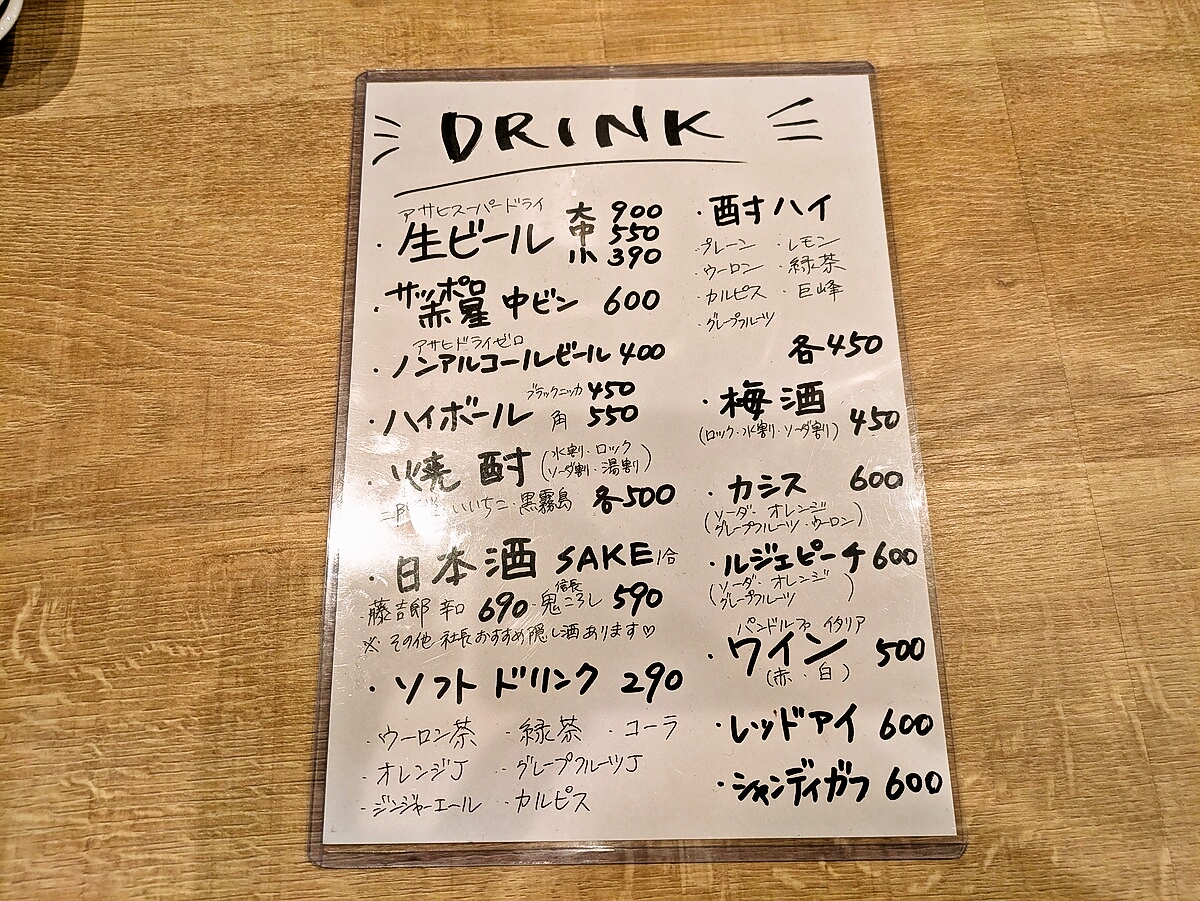 DRINK
アサヒスーパードライ
・生ビール 大 900
中 550
小 390
・サッポロ
赤星 中ビン 600
アサヒドライゼロ
・ノンアルコールビール 400
・ハイボール ブラックニッカ 450
角 550
・焼酎 (水割・ロック
ソーダ割・湯割)
いいちこ・黒霧島 各500
・日本酒 SAKE 1合
藤吉郎 辛口 690・信長 鬼ころし 590
※ その他 社長おすすめ隠し酒あります♡
・ソフトドリンク 290
・ウーロン茶 ・緑茶 ・コーラ
・オレンジJ ・グレープフルーツJ
・ジンジャーエール ・カルピス
・酎ハイ
・プレーン ・レモン
・ウーロン ・緑茶
・カルピス ・巨峰
・グレープフルーツ
各450
・梅酒 450
(ロック・水割・ソーダ割)
・カシス 600
(ソーダ・オレンジ
グレープフルーツ・ウーロン)
・ルジェピーチ 600
(ソーダ・オレンジ
グレープフルーツ)
パンドルフォ イタリア
・ワイン 500
(赤・白)
・レッドアイ 600
・シャンディガフ 600